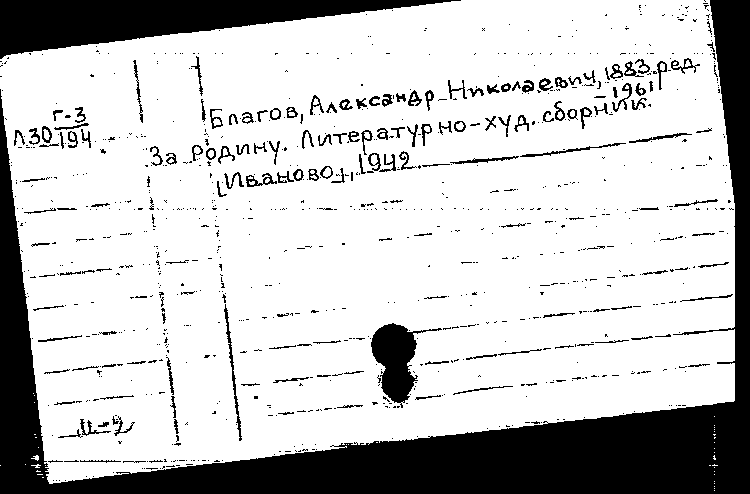 Благов, Александр Николаевич, 1883 ред.
-1961
Г-3
Л30 194
За Родину. Литературно-худ. сборник.
[Иваново], 1942